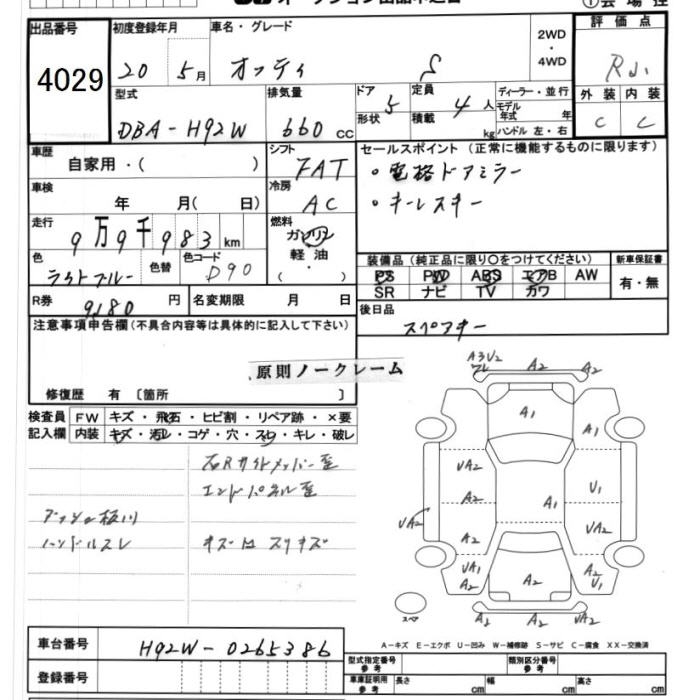 出品番号 初度登録年月 車名・グレード 2WD・4WD 評価点
4029 20 5月 オッティ S
外装 内装
C C
型式 排気量 ドア形状 定員 積載 ディーラー・並行
DBA-H92W 660cc 5 4人 kg モデル年式 年 ハンドル 左・右
車歴 自家用・( ) シフト FAT セールスポイント(正常に機能するものに限ります)
・電格ドアミラー
・キーレスキー
車検 年 月( 日) 冷房 AC
走行 9万9千983km 燃料 ガソリン 軽油・( )
色 ライトブルー 色替 色コード D90
装備品(純正品に限り○をつけてください) 新車保証書
PS PW ABS エアB AW 有・無
SR ナビ TV カワ
R券 9180円 名変期限 月 日 後日品
スペアキー
注意事項申告欄(不具合内容等は具体的に記入して下さい)
原則ノークレーム
修復歴 有〔箇所 〕
検査員記入欄 FW キズ・飛石・ヒビ割・リペア跡・×要
内装 キズ・汚レ・コゲ・穴・スレ・キレ・破レ
右Rサイドメンバー歪
エンドパネル歪
ハンドルスレ キズ、スリキズ
A3U2 A2 A2
A1 A1
UA2 U1
A2 A1
UA2 A2 UA2
UA1 A2 A2 A2 U1
A2 UA2
スペア
A-キズ E-エクボ U-凹み W-補修跡 S-サビ C-腐食 XX-交換済
車台番号 H92W-0265386
登録番号
型式指定番号 参考 類別区分番号 参考
車庫証明用 参考 長さ cm 幅 cm 高さ cm